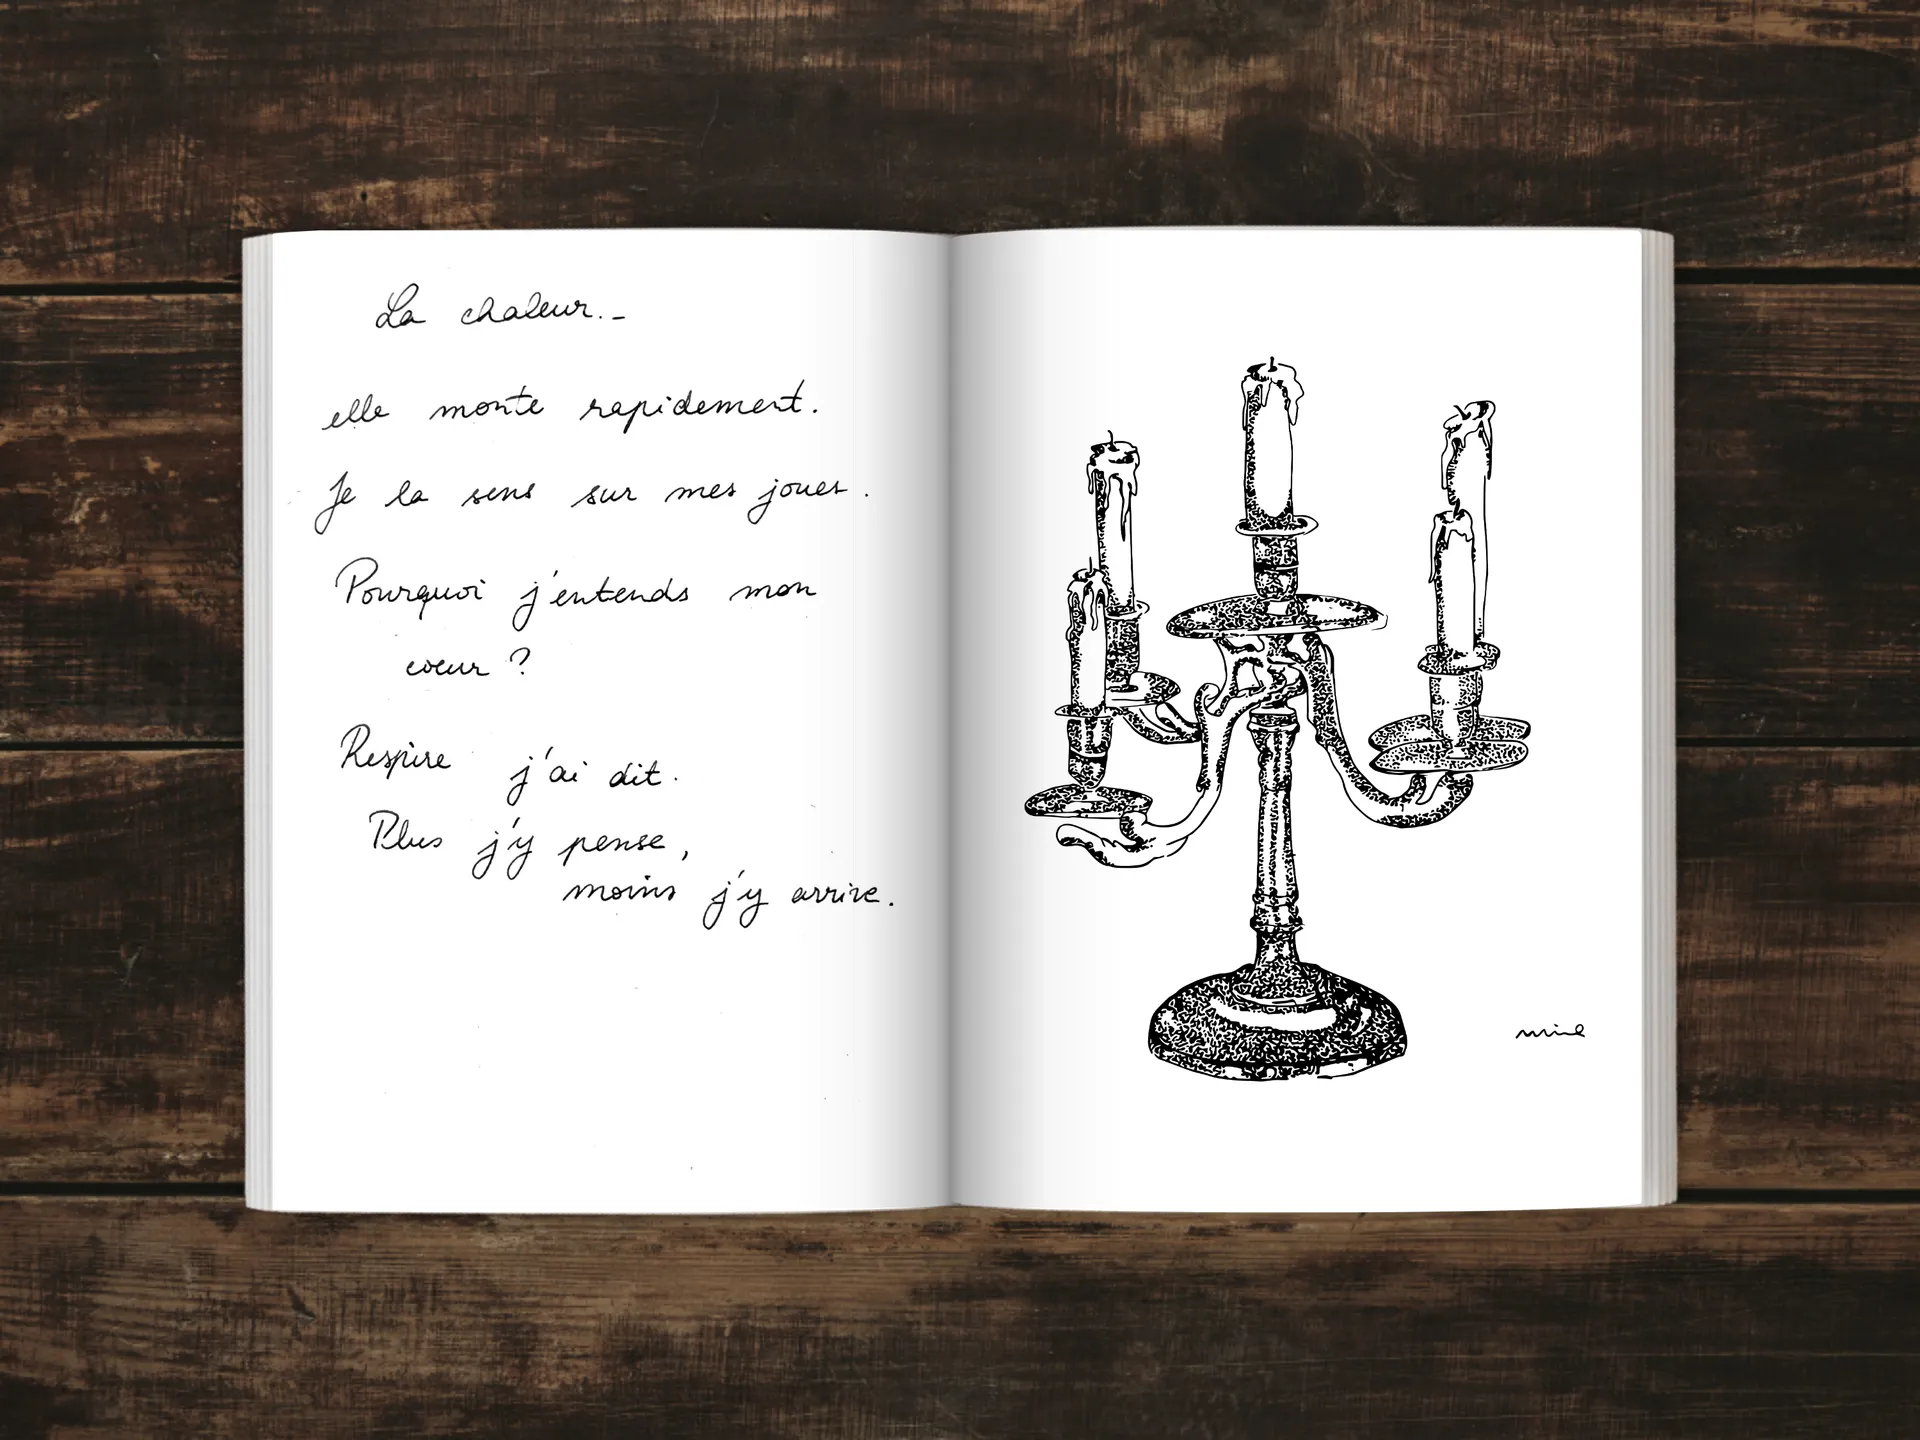 La chaleur..
elle monte rapidement.
Je la sens sur mes joues.
Pourquoi j'entends mon
coeur ?
Respire j'ai dit.
Plus j'y pense,
moins j'y arrive.